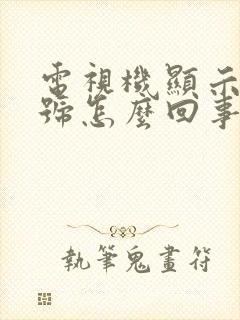 電視機顯示
號怎麼回事
執筆鬼畫符